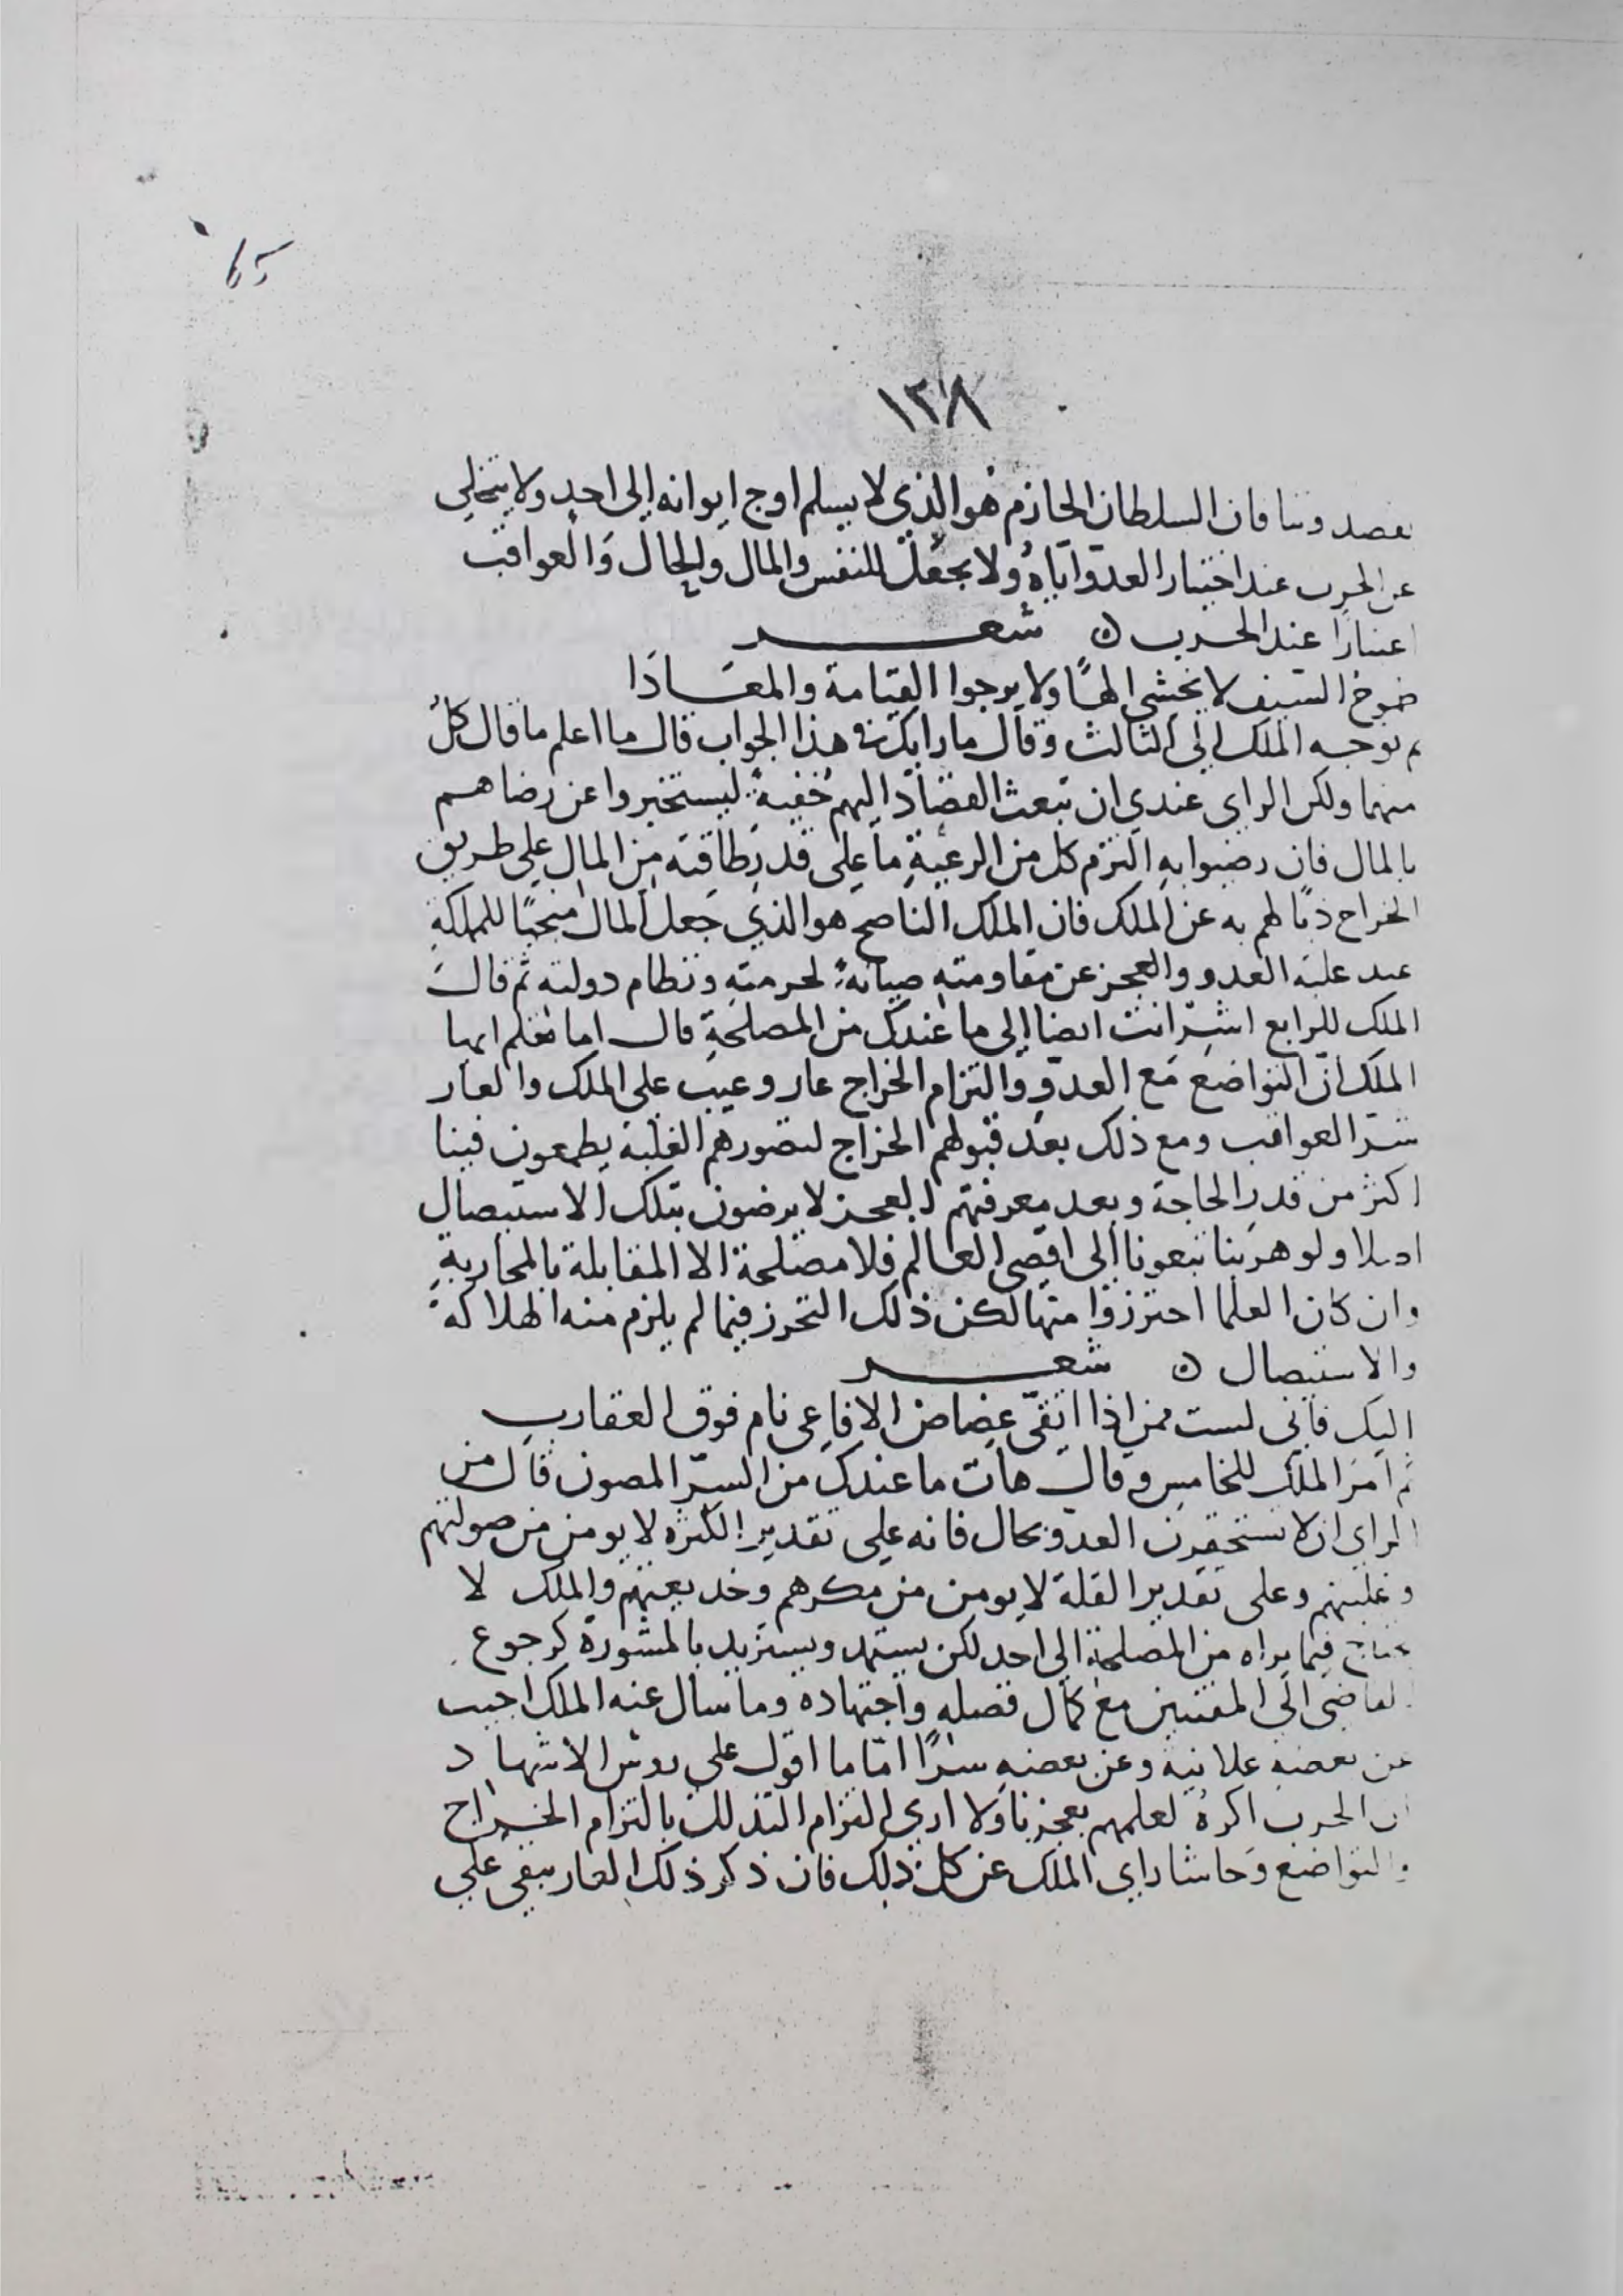 65
١٣٨
فان السلطان الحازم هو الذي لا يسلم اوج ايوانه الى احد ولا يتخلى
عن الحرب عند اختيار العدو اياهُ ولا يجعل للنفس والمال والحال والعواقب
عند الحرب ه شعر
السيف لا يخشى الهًا ولا يرجوا القيامة والمعَادَا
ثم توجه الملك الى الثالث وقال ما رايك في هذا الجواب قال ما اعلم ما قال كلٌ
منهما ولكن الراى عندي ان تبعث القصّاد اليهم خُفيةً ليستخبروا عن رضاهم
بالمال فان رضوا به التزم كل من الرعية ما على قدر طاقته من المال على طريق
الخراج ذبًا لهم به عن الملك فان الملك الناصح هو الذي جعل المال للملكة
عند غلبة العدو والعجز عن مقاومته صيانةً لحرمته ونظام دولته ثم قال
الملك للرابع اشِر انت ايضا الى ما عندك من المصلحة قال اما تعلم ايها
الملك انّ التواضع مَع العدوّ والتزام الخراج عار وعيب على الملك والعار
شرّ العواقب ومع ذلك بعد قبولهم الخراج لتصورهم الغلبة يطمعون فينا
اكثر من قدر الحاجة وبعد معرفتهم العجز لا يرضون بتلك الاستيصال
ولو هربنا تبعونا الى اقصى العالم فلا مصلحة الا المقابلة بالمحاربةِ
وان كان العلما احترزوا منها لكن ذلك التحرز فيما لم يلزم منه الهلاكة
والاستيصال ه شعر
اليك فانى لست ممن اذا اتقى عضاض الافاعى نام فوق العقارب
ثم امرَ الملك للخامس وقال هات ما عندك من السرّ المصون قال من
الراى ان لا تستحقرن العدو بحال فانه على تقدير الكثره لا يومن من صولتهم
وغلبتهم وعلى تقدير القلة لا يومن من مكرهم وخديعتهم والملك لا
يحتاج فيما يراه من المصلحة الى احد لكن يستمد ويستزيد بالمشورة كرجوع
القاضى الى المفتيين مع كمال فضله واجتهاده وما سال عنه الملك اجيب
عن بعضه علانية وعن بعضه سرًا امّا ما اقول على روس الاشهاد
ان الحرب اكرهُ لعلمهم بعجزنا ولا ارى التزام التذلل بالتزام الخراج
والتواضع وحاشا راى الملك عن كل ذلك فان ذكر ذلك العار يبقى على